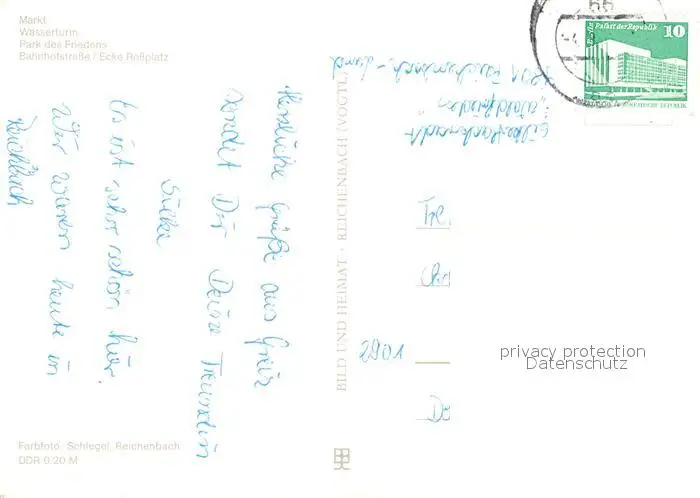 Markt
Wasserturm
Park des Friedens
Bahnhofstraße / Ecke Roßplatz
Herzliche Grüße aus Greiz
sendet Dir Deine Freundin
Silke
Es ist sehr schön hier.
Wir waren heute in
Reichenbach
Farbfoto: Schlegel, Reichenbach
DDR 0,20 M
BILD UND HEIMAT · REICHENBACH (VOGTL)
66
Palast der Republik
10
DEUTSCHE DEMOKRATISCHE REPUBLIK
"Waldfrieden"
2901
privacy protection
Datenschutz